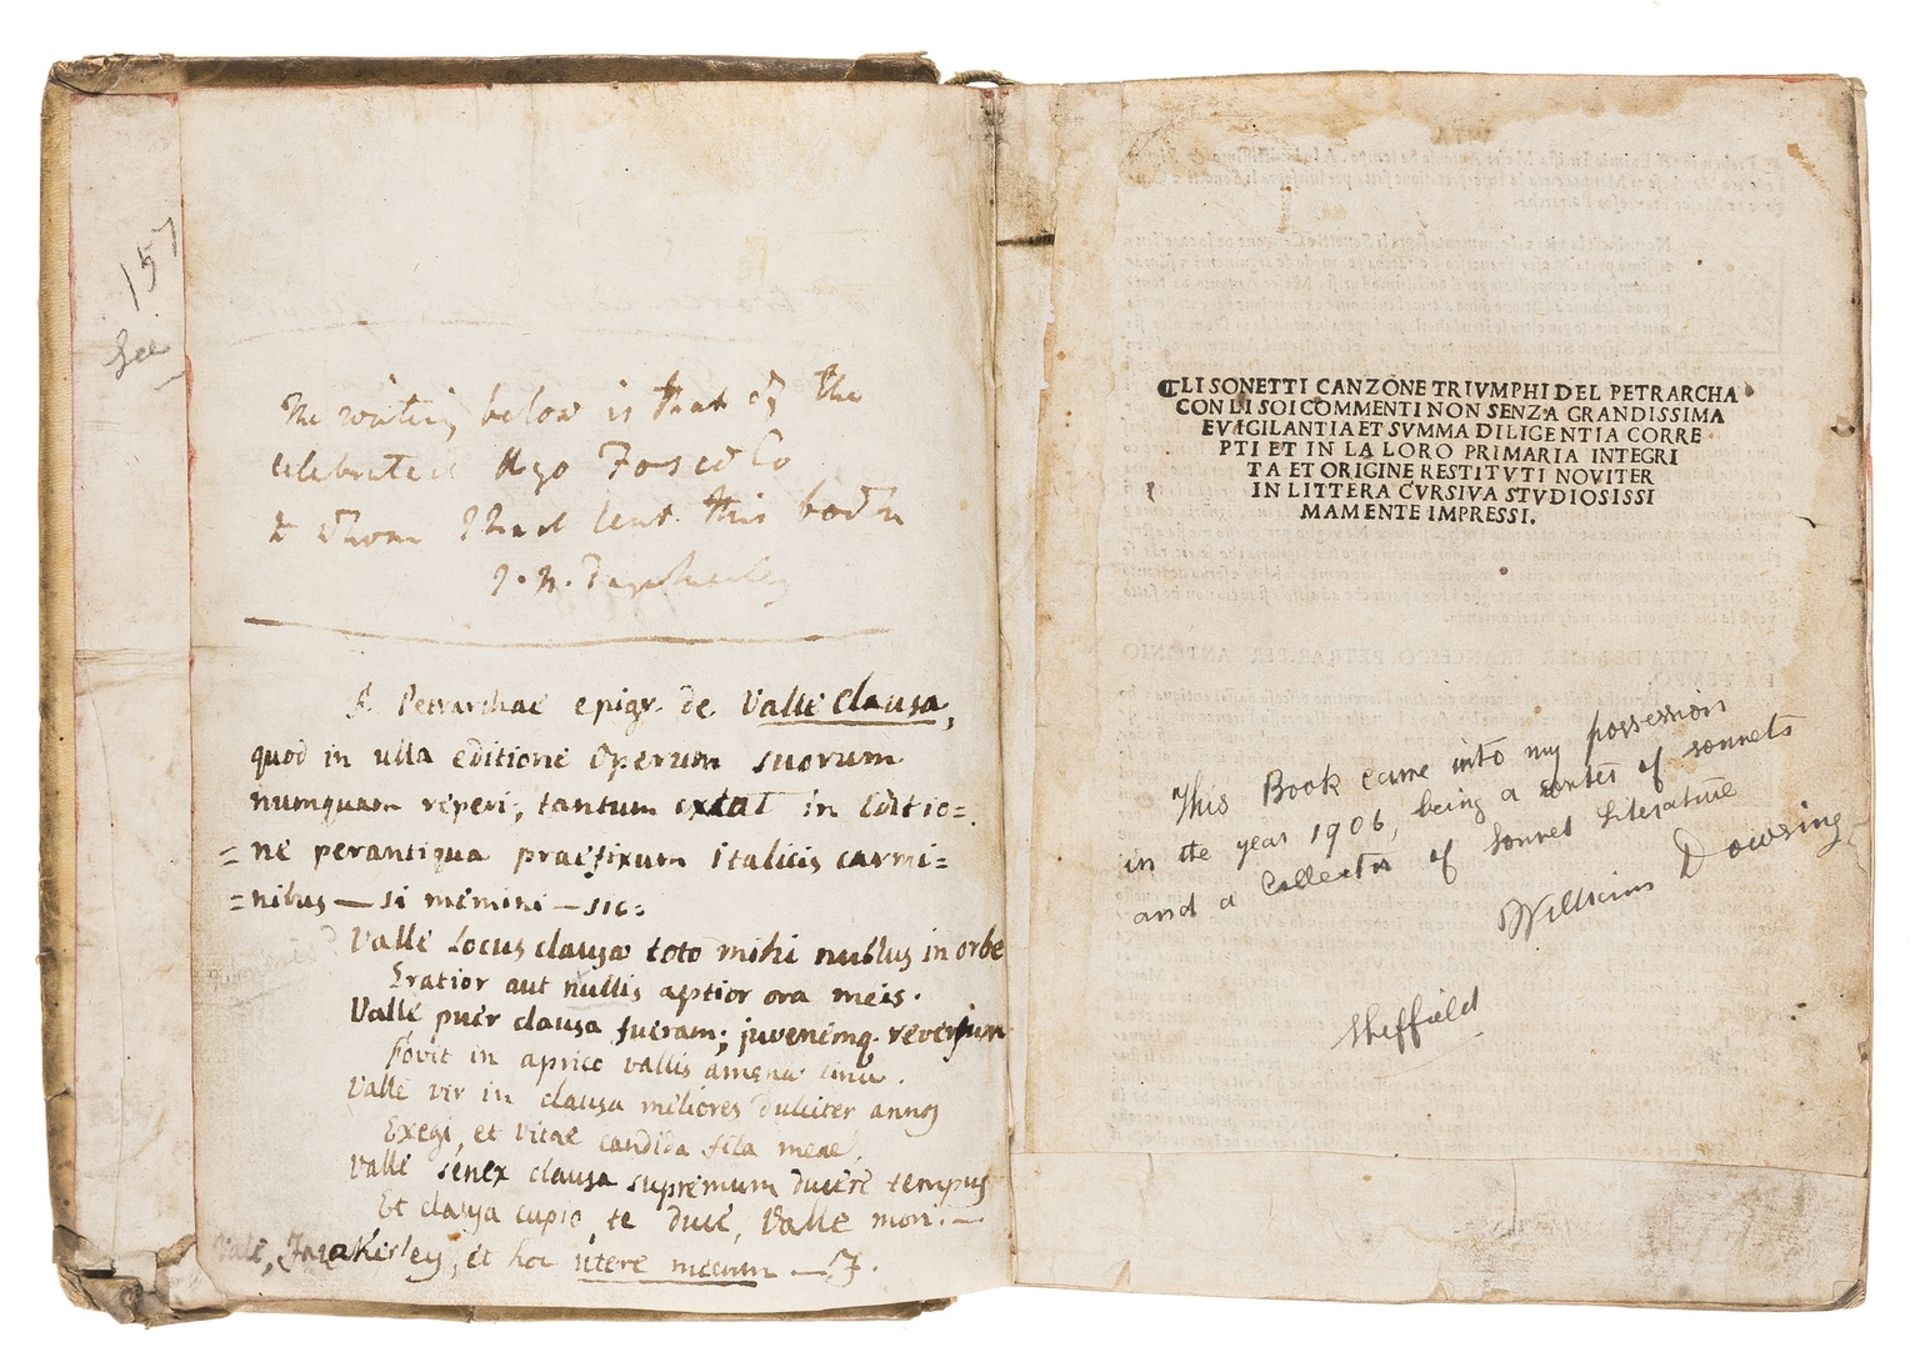 157
See
The writing below is that of the
celebrated Ugo Foscolo
to whom I had lent this book
F. Petrarchae epigr. de Valle Clausa,
quod in ulla editione Operum suorum
numquam reperi; tantum extat in Editio=
=ne perantiqua praefixum italicis carmi=
=nibus — si memini — sic:
Valle Locus clausa toto mihi nullus in orbe
Gratior aut nullis aptior ora meis.
Valle puer clausa fueram; juvenemq. reversum
Fovit in aprico vallis amena sinu.
Valle vir in clausa meliores dulciter annos
Exegi, et vitae candida fila meae.
Valle senex clausa supremum ducere tempus
Et clausa cupio, te duce, Valle mori. —
Vale, et hoc utere mecum — F.
GLI SONETTI CANZONE TRIVMPHI DEL PETRARCHA
CON LI SOI COMMENTI NON SENZA GRANDISSIMA
EVIGILANTIA ET SVMMA DILIGENTIA CORRE
PTI ET IN LA LORO PRIMARIA INTEGRI
TA ET ORIGINE RESTITVTI NOVITER
IN LITTERA CVRSIVA STVDIOSISSI
MAMENTE IMPRESSI.
This Book came into my possession
in the year 1906, being a writer of sonnets
and a Collector of Sonnet Literature
William Dowsing
Sheffield